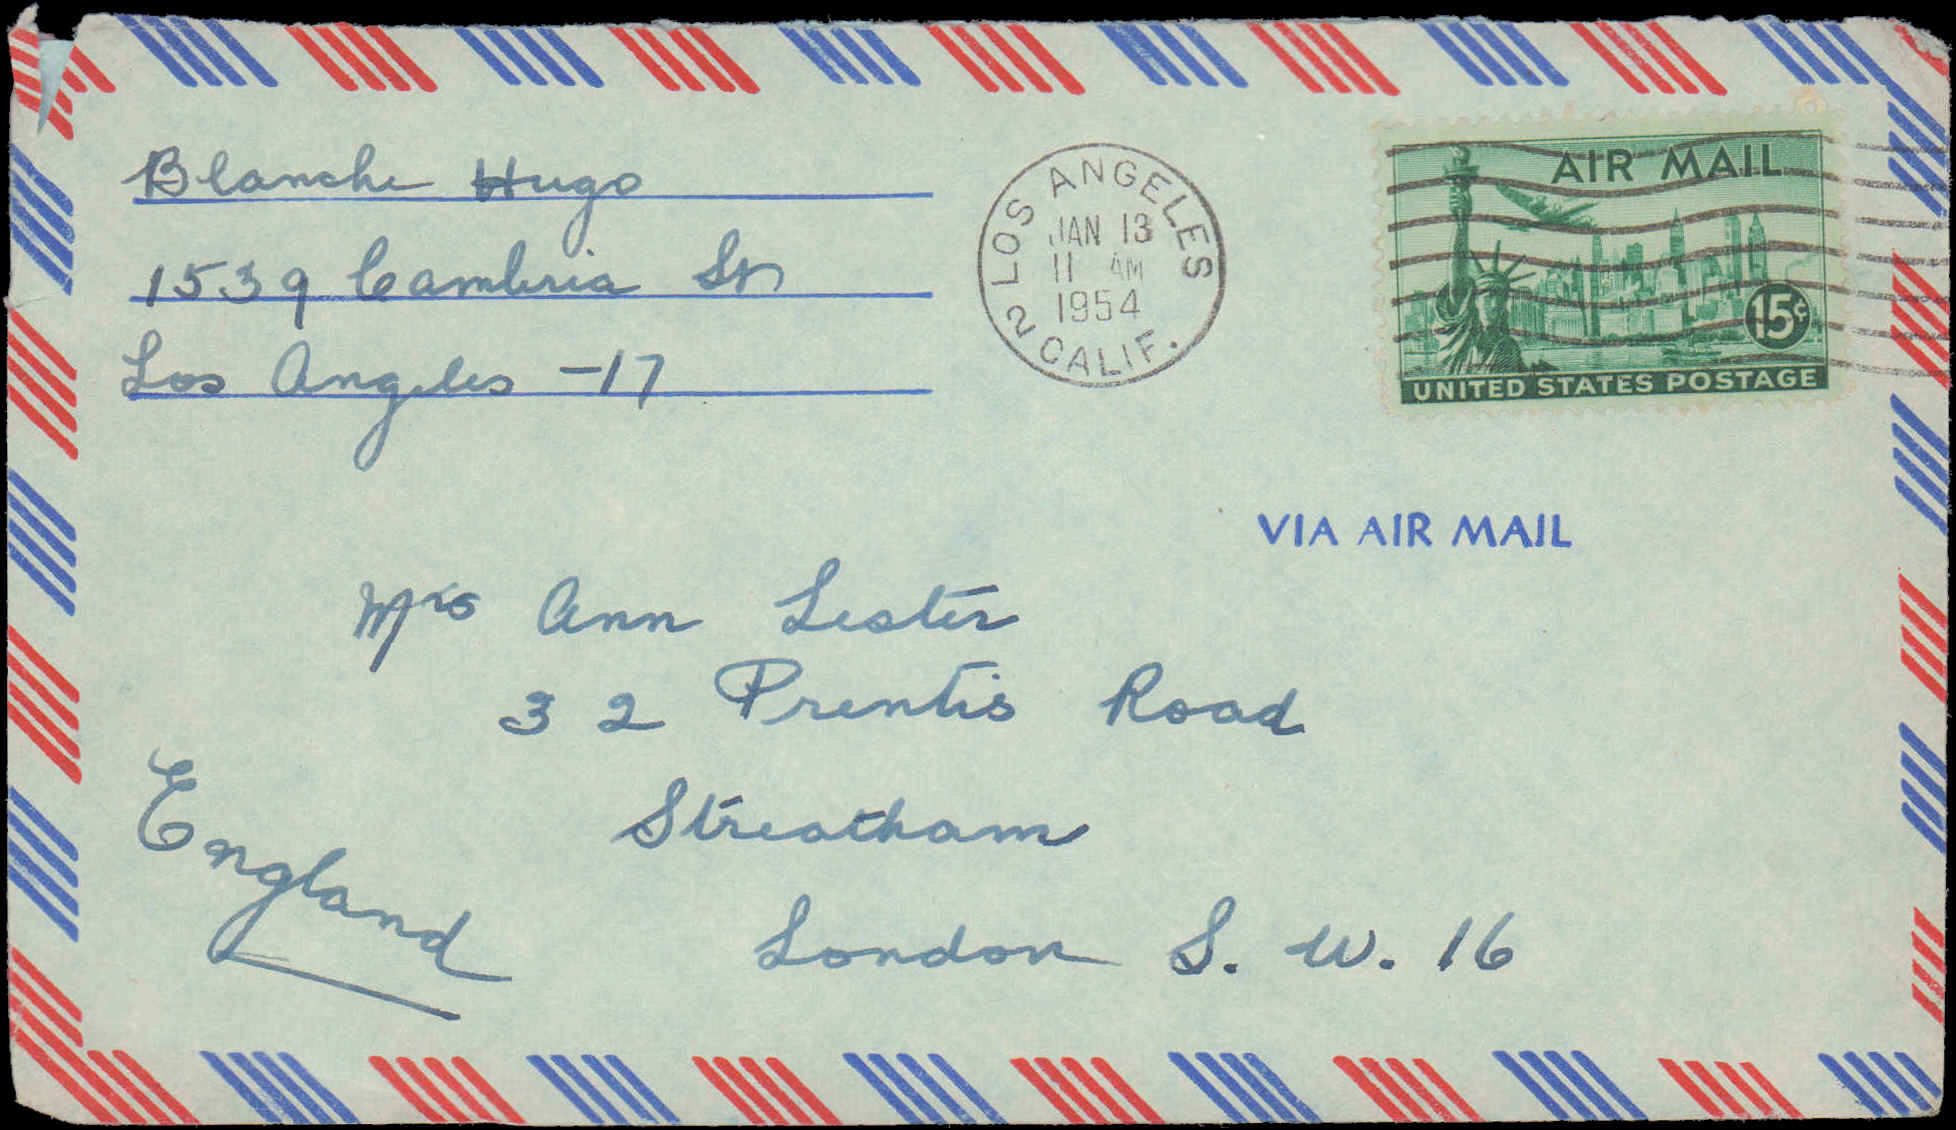 Blanche Hugo
1539 Cambria St
Los Angeles -17
LOS ANGELES
JAN 13
11 AM
1954
2 CALIF.
AIR MAIL
15c
UNITED STATES POSTAGE
VIA AIR MAIL
Mrs Ann Lester
32 Prentis Road
Streatham
London S. W. 16
England